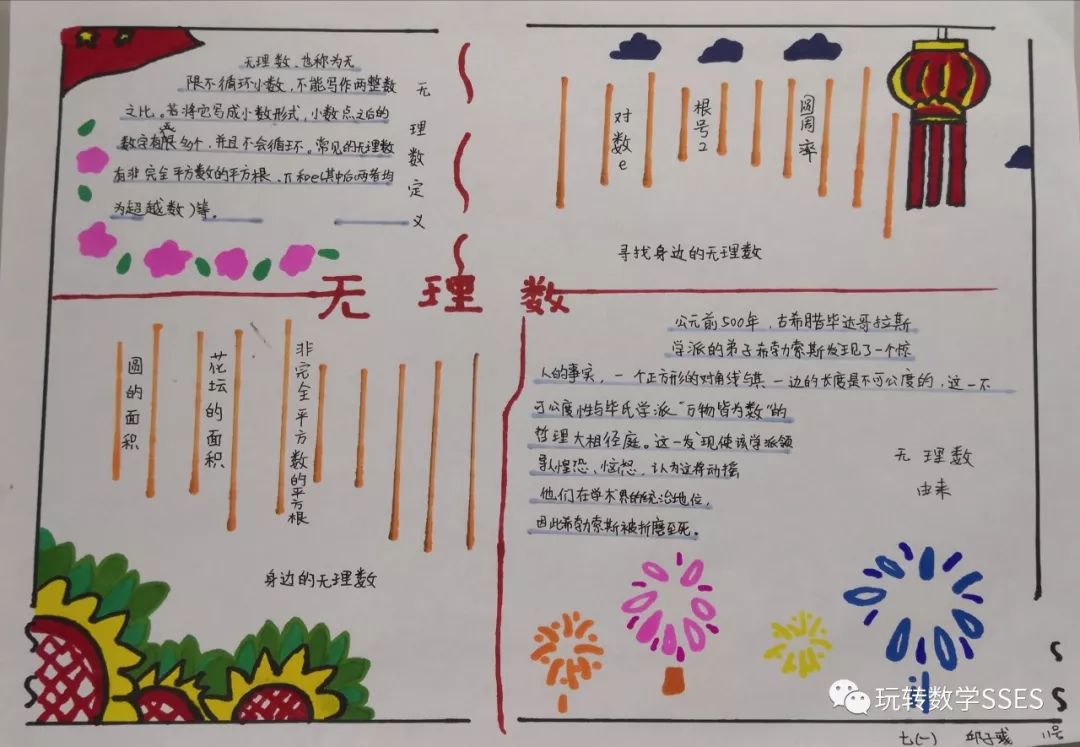 无理数、也称为无
限不循环小数，不能写作两整数
之比。若将它写成小数形式，小数点之后的
数字有无限多个，并且不会循环。常见的无理数
有非完全平方数的平方根、π和e(其中后两者均
为超越数)等。
无理数定义
对数e
根号2
圆周率
寻找身边的无理数
无理数
圆的面积
花坛的面积
非完全平方数的平方根
身边的无理数
公元前500年，古希腊毕达哥拉斯
学派的弟子希勃索斯发现了一个惊
人的事实，一个正方形的对角线与其一边的长度是不可公度的，这一不
可公度性与毕氏学派“万物皆为数”的
哲理大相径庭。这一发现使该学派领
导人惶恐、恼怒，认为这将动摇
他们在学术界的统治地位，
因此希勃索斯被折磨至死。
无理数
由来
玩转数学SSES
七(一)
11号